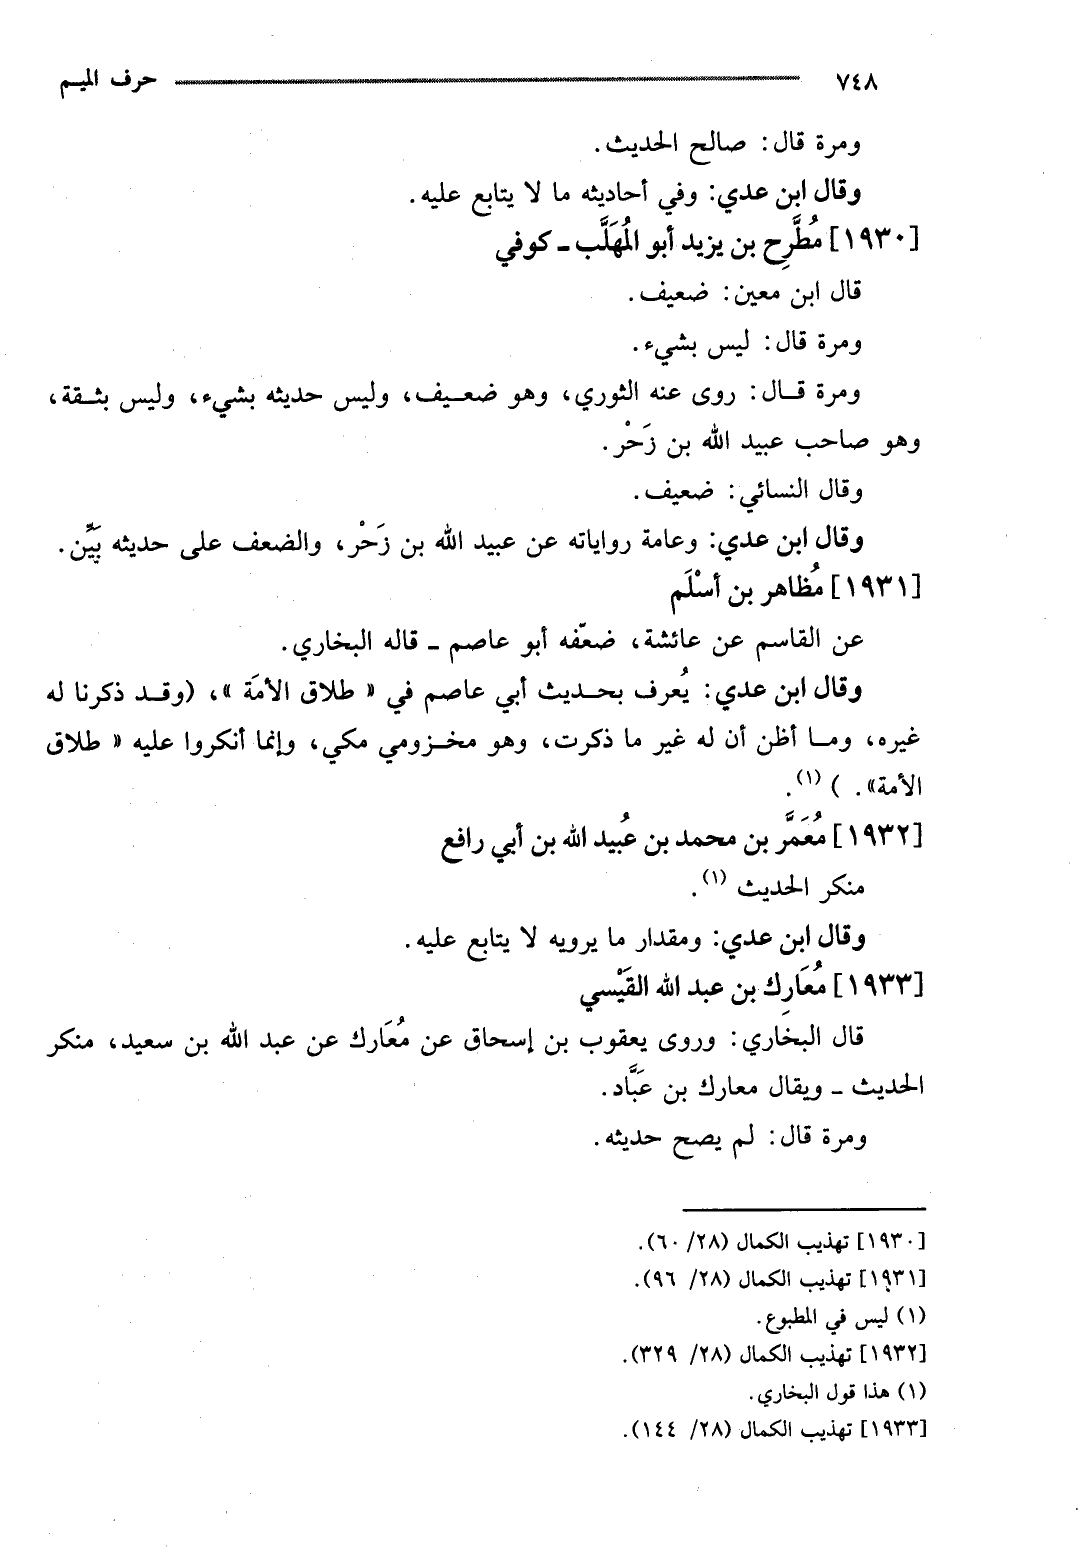 ٧٤٨ حرف الميم
ومرة قال: صالح الحديث.
وقال ابن عدي: وفي أحاديثه ما لا يتابع عليه.
[١٩٣٠] مُطَّرِح بن يزيد أبو المُهَلَّب ـ كوفي
قال ابن معين: ضعيف.
ومرة قال: ليس بشيء.
ومرة قال: روى عنه الثوري، وهو ضعيف، وليس حديثه بشيء، وليس بثقة،
وهو صاحب عبيد الله بن زَحْر.
وقال النسائي: ضعيف.
وقال ابن عدي: وعامة رواياته عن عبيد الله بن زَحْر، والضعف على حديثه بَيِّن.
[١٩٣١] مُظاهر بن أسْلَم
عن القاسم عن عائشة، ضعّفه أبو عاصم ـ قاله البخاري.
وقال ابن عدي: يُعرف بحديث أبي عاصم في « طلاق الأمَة »، (وقد ذكرنا له
غيره، وما أظن أن له غير ما ذكرت، وهو مخزومي مكي، وإنما أنكروا عليه « طلاق
الأمة». ) (١).
[١٩٣٢] مُعَمَّر بن محمد بن عُبيد الله بن أبي رافع
منكر الحديث (١).
وقال ابن عدي: ومقدار ما يرويه لا يتابع عليه.
[١٩٣٣] مُعَارِك بن عبد الله القَيْسي
قال البخاري: وروى يعقوب بن إسحاق عن مُعَارك عن عبد الله بن سعيد، منكر
الحديث ـ ويقال معارك بن عَبَّاد.
ومرة قال: لم يصح حديثه.
[١٩٣٠] تهذيب الكمال (٢٨/ ٦٠).
[١٩٣١] تهذيب الكمال (٢٨/ ٩٦).
(١) ليس في المطبوع.
[١٩٣٢] تهذيب الكمال (٢٨/ ٣٢٩).
(١) هذا قول البخاري.
[١٩٣٣] تهذيب الكمال (٢٨/ ١٤٤).